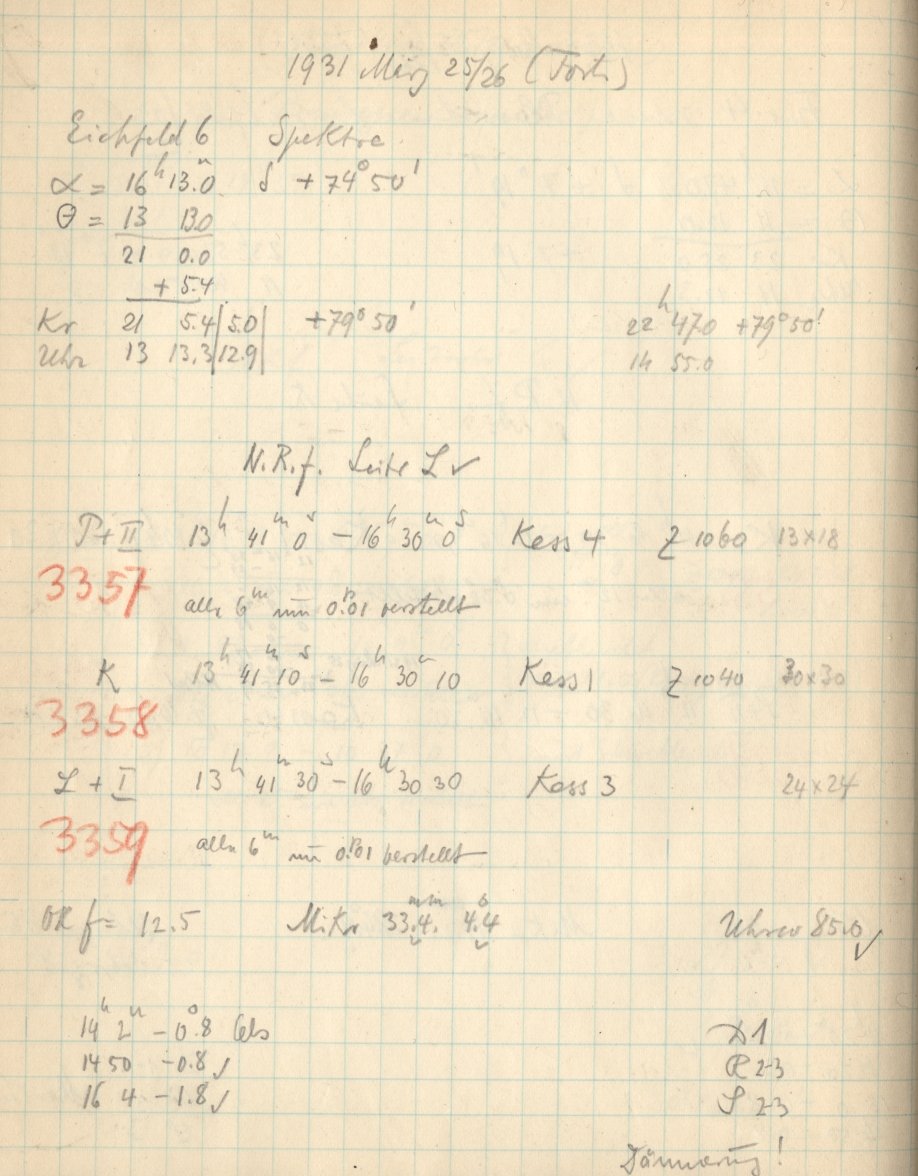 1931 März 25/26 (Forts.)
Eichfeld 6 Spektra
α = 16ʰ 13.0ᵐ δ +74° 50'
θ = 13 13.0
21 0.0
+ 5.4
Kr 21 5.4|5.0| +79° 50' 22ʰ 47.0 +79° 50'
Uhr 13 13.3|12.9| 14 55.0
N.R.f. Seite L ✓
P+II 13ʰ 41ᵐ 0ˢ – 16ʰ 30ᵐ 0ˢ Kass 4 Z 1060 13×18
3357
alle 6ᵐ um 0.01 verstellt
K 13ʰ 41ᵐ 10ˢ – 16ʰ 30ᵐ 10 Kass 1 Z 1040 30×30
3358
L + I 13ʰ 41ᵐ 30ˢ – 16ʰ 30 30 Kass 3 24×24
3359
alle 6ᵐ um 0.01 verstellt
OR f = 12.5 Mikr 33.4. 4.4 Uhrw 85.0 ✓
14ʰ 2ᵐ – 0°.8 Cels
14 50 – 0.8 ✓
16 4 – 1.8 ✓
D 1
R 2-3
S 2-3
Dämmerung!